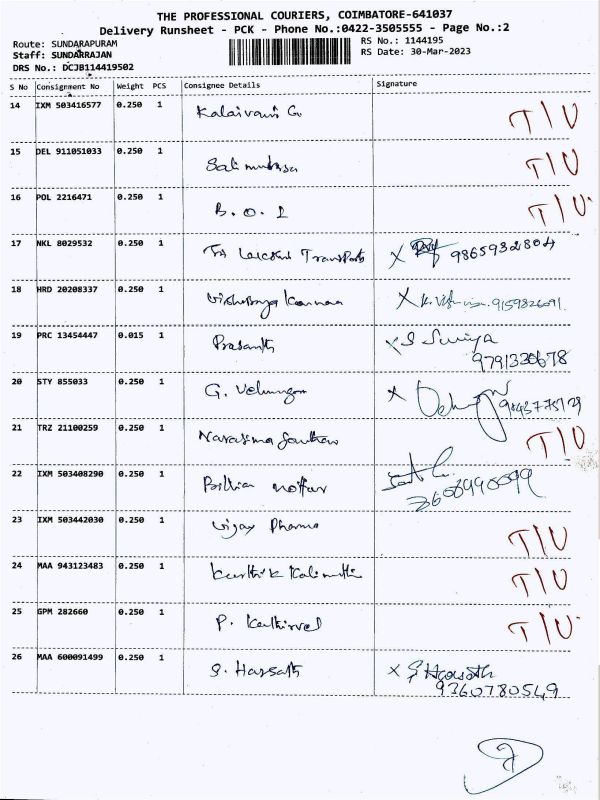 THE PROFESSIONAL COURIERS, COIMBATORE-641037
Delivery Runsheet - PCK - Phone No.:0422-3505555 - Page No.:2
Route: SUNDARAPURAM RS No.: 1144195
Staff: SUNDARRAJAN RS Date: 30-Mar-2023
DRS No.: DCJB114419502
S No Consignment No Weight PCS Consignee Details Signature
14 IXM 503416577 0.250 1 Kalaivani G T/U
15 DEL 911051033 0.250 1 T/U
16 POL 2216471 0.250 1 B.O.I T/U
17 NKL 8029532 0.250 1 Sri Lakshmi Transports X 9865932804
18 HRD 20208337 0.250 1 X 9159826091
19 PRC 13454447 0.015 1 Prasanth X S Suriya
9791330678
20 STY 855033 0.250 1 G. Velmurugan X
21 TRZ 21100259 0.250 1 T/U
22 IXM 503408290 0.250 1
23 IXM 503442030 0.250 1 Vijay Pharma T/U
24 MAA 943123483 0.250 1 Karthik T/U
25 GPM 282660 0.250 1 P. Kathirvel T/U
26 MAA 600091499 0.250 1 S. Harsath X S Harsath
9360780549